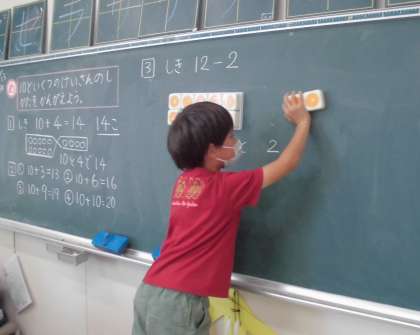 2 10といくつのけいさんのし
かたをかんがえよう。
1 しき 10+4=14 14こ
10と4で14
2 ① 10+3=13 ② 10+6=16
③ 10+9=19 ④ 10+10=20
3 しき 12-2
と 2